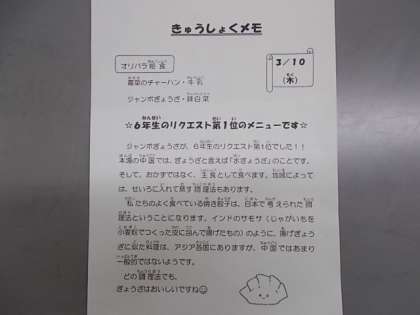 きゅうしょくメモ
3/10
(木)
オリパラ給食
高菜のチャーハン・牛乳
ジャンボぎょうざ・辣白菜
☆6年生のリクエスト第1位のメニューです☆
ジャンボぎょうざが、6年生のリクエスト第1位でした!!
本場の中国では、ぎょうざと言えば「水ぎょうざ」のことです。
そして、おかずではなく、主食として食べます。地域によって
は、せいろに入れて蒸す調理法もあります。
私たちのよく食べている焼き餃子は、日本で考えられた調
理法ということになります。インドのサモサ(じゃがいもを
小麦粉でつくった皮に包んで揚げたもの)のように、揚げぎょう
ざに似た料理は、アジア各国にありますが、中国ではあまり
一般的ではないようです。
どの調理法でも、
ぎょうざはおいしいですね☺